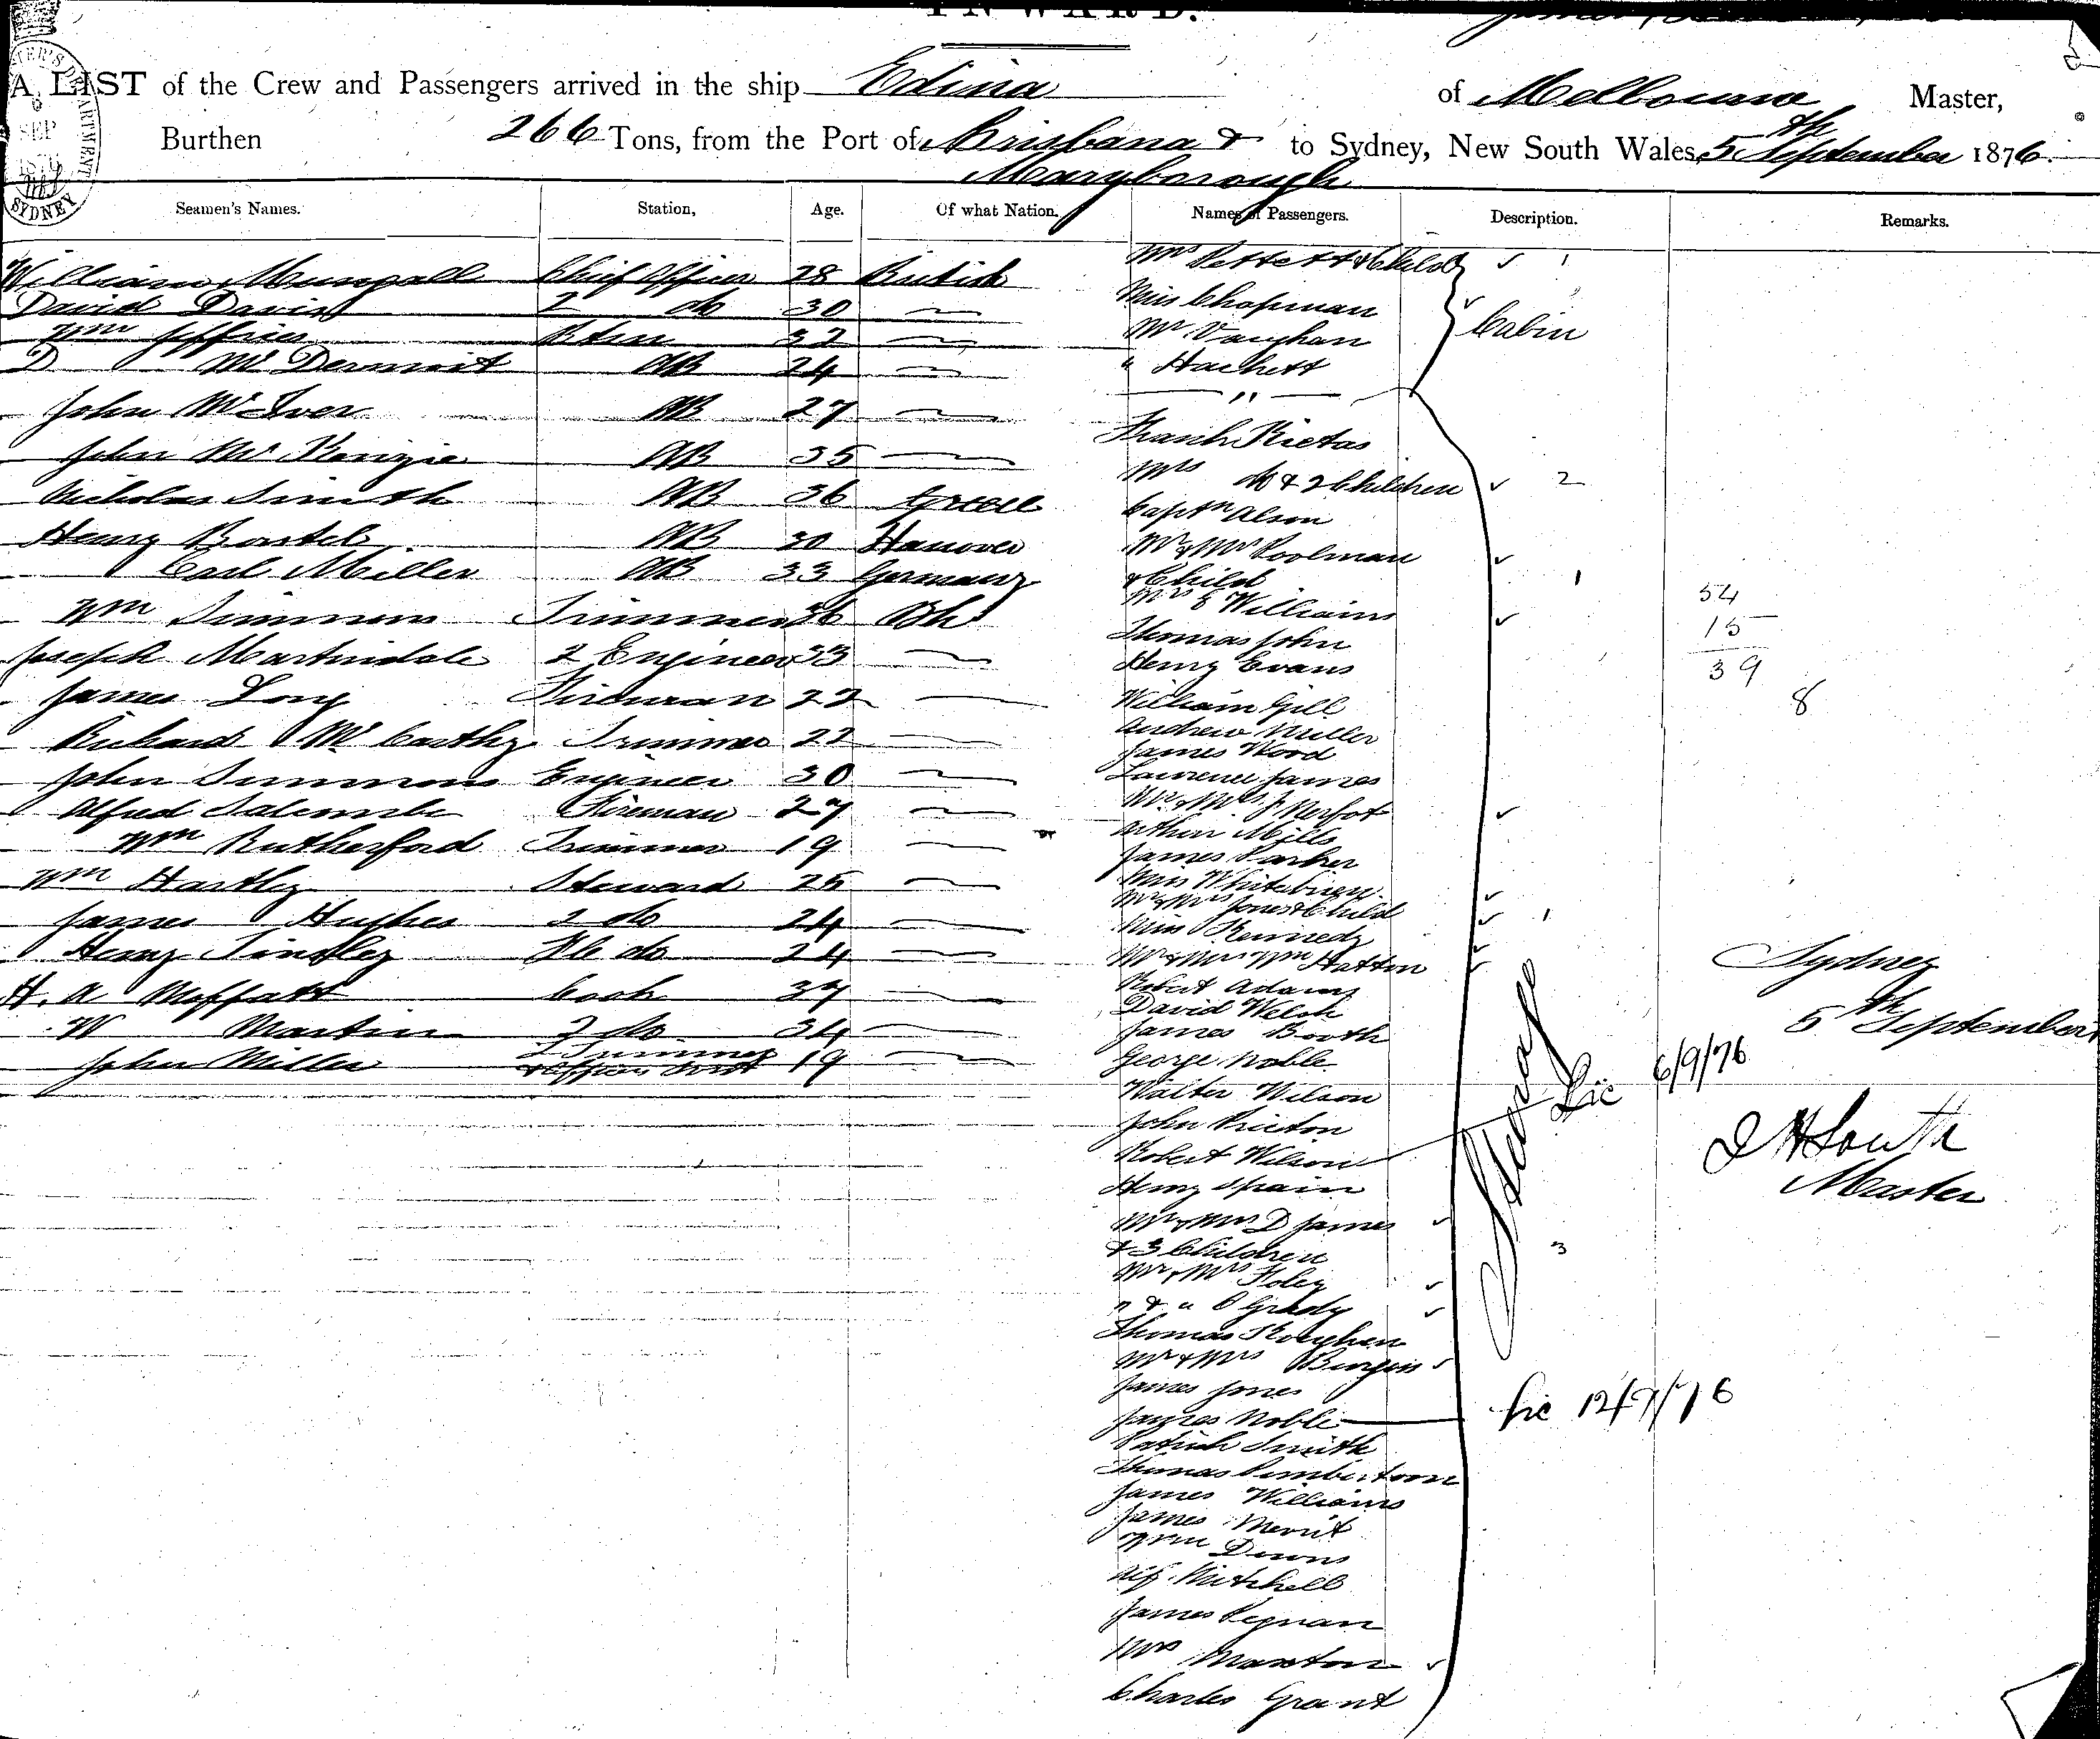 INWARD.
A LIST of the Crew and Passengers arrived in the ship Edina of Melbourne Master,
Burthen 266 Tons, from the Port of Brisbane & to Sydney, New South Wales, 5th September 1876.
Maryborough
Seamen's Names. Station, Age. Of what Nation. Names of Passengers. Description. Remarks.
William Mungall Chief Officer 28 British
David Davis 2 do 30
Wm Jeffries 32
D McDermott AB 24
John McIver AB 27
John McKenzie AB 35
Nicholas Smith AB 36 Greece
Henry Bartels AB 30 Hanover
Carl Miller AB 33 Germany
Wm Simmons Trimmer 36 Bh
Joseph Martindale 2 Engineer 33
James Long Fireman 22
Richard McCarthy Trimmer 22
John Simmons Engineer 30
Alfred Salcombe Fireman 27
Wm Rutherford Trimmer 19
Wm Hartley Steward 25
James Hughes 2 do 24
Henry Tindley do 24
H. A Moffatt Cook 37
W Martin 2 do 34
John Miller 19
Mrs Pettett & Child 1
Miss Chapman
Mr Vaughan
" Hackett
Cabin
"
Frank Rietas
Mrs do & 2 Children 2
Captn Alson
Mr & Mrs Poolman
& Child 1
Mrs E Williams
Thomas John
Henry Evans
William Gill
Andrew Miller
James Wood
Lawrence James
Mr & Mrs J Merfot
Arthur Mills
James Parker
Miss Whitebiren
Mr & Mrs Jones & Child 1
Miss Kennedy
Mr & Mrs Wm Hatton
Robert Adams
David Welch
James Booth
George Noble
Walter Wilson
John Prieton
Robert Wilson
Henry Spain
Mr & Mrs D James
& 3 Children 3
Mr & Mrs Foley
" & " O Grady
Thomas Roughen
Mr & Mrs Burgin
James Jones
James Noble
Patrick Smith
Thomas Pemberton
James Williams
James Merrit
Wm Downs
Alf. Mitchell
James Regnan
Mrs Manton
Charles Grant
Steerage
Lic 6/9/76
Lic 12/9/76
54
15
39
8
Sydney
5th September
D H South
Master